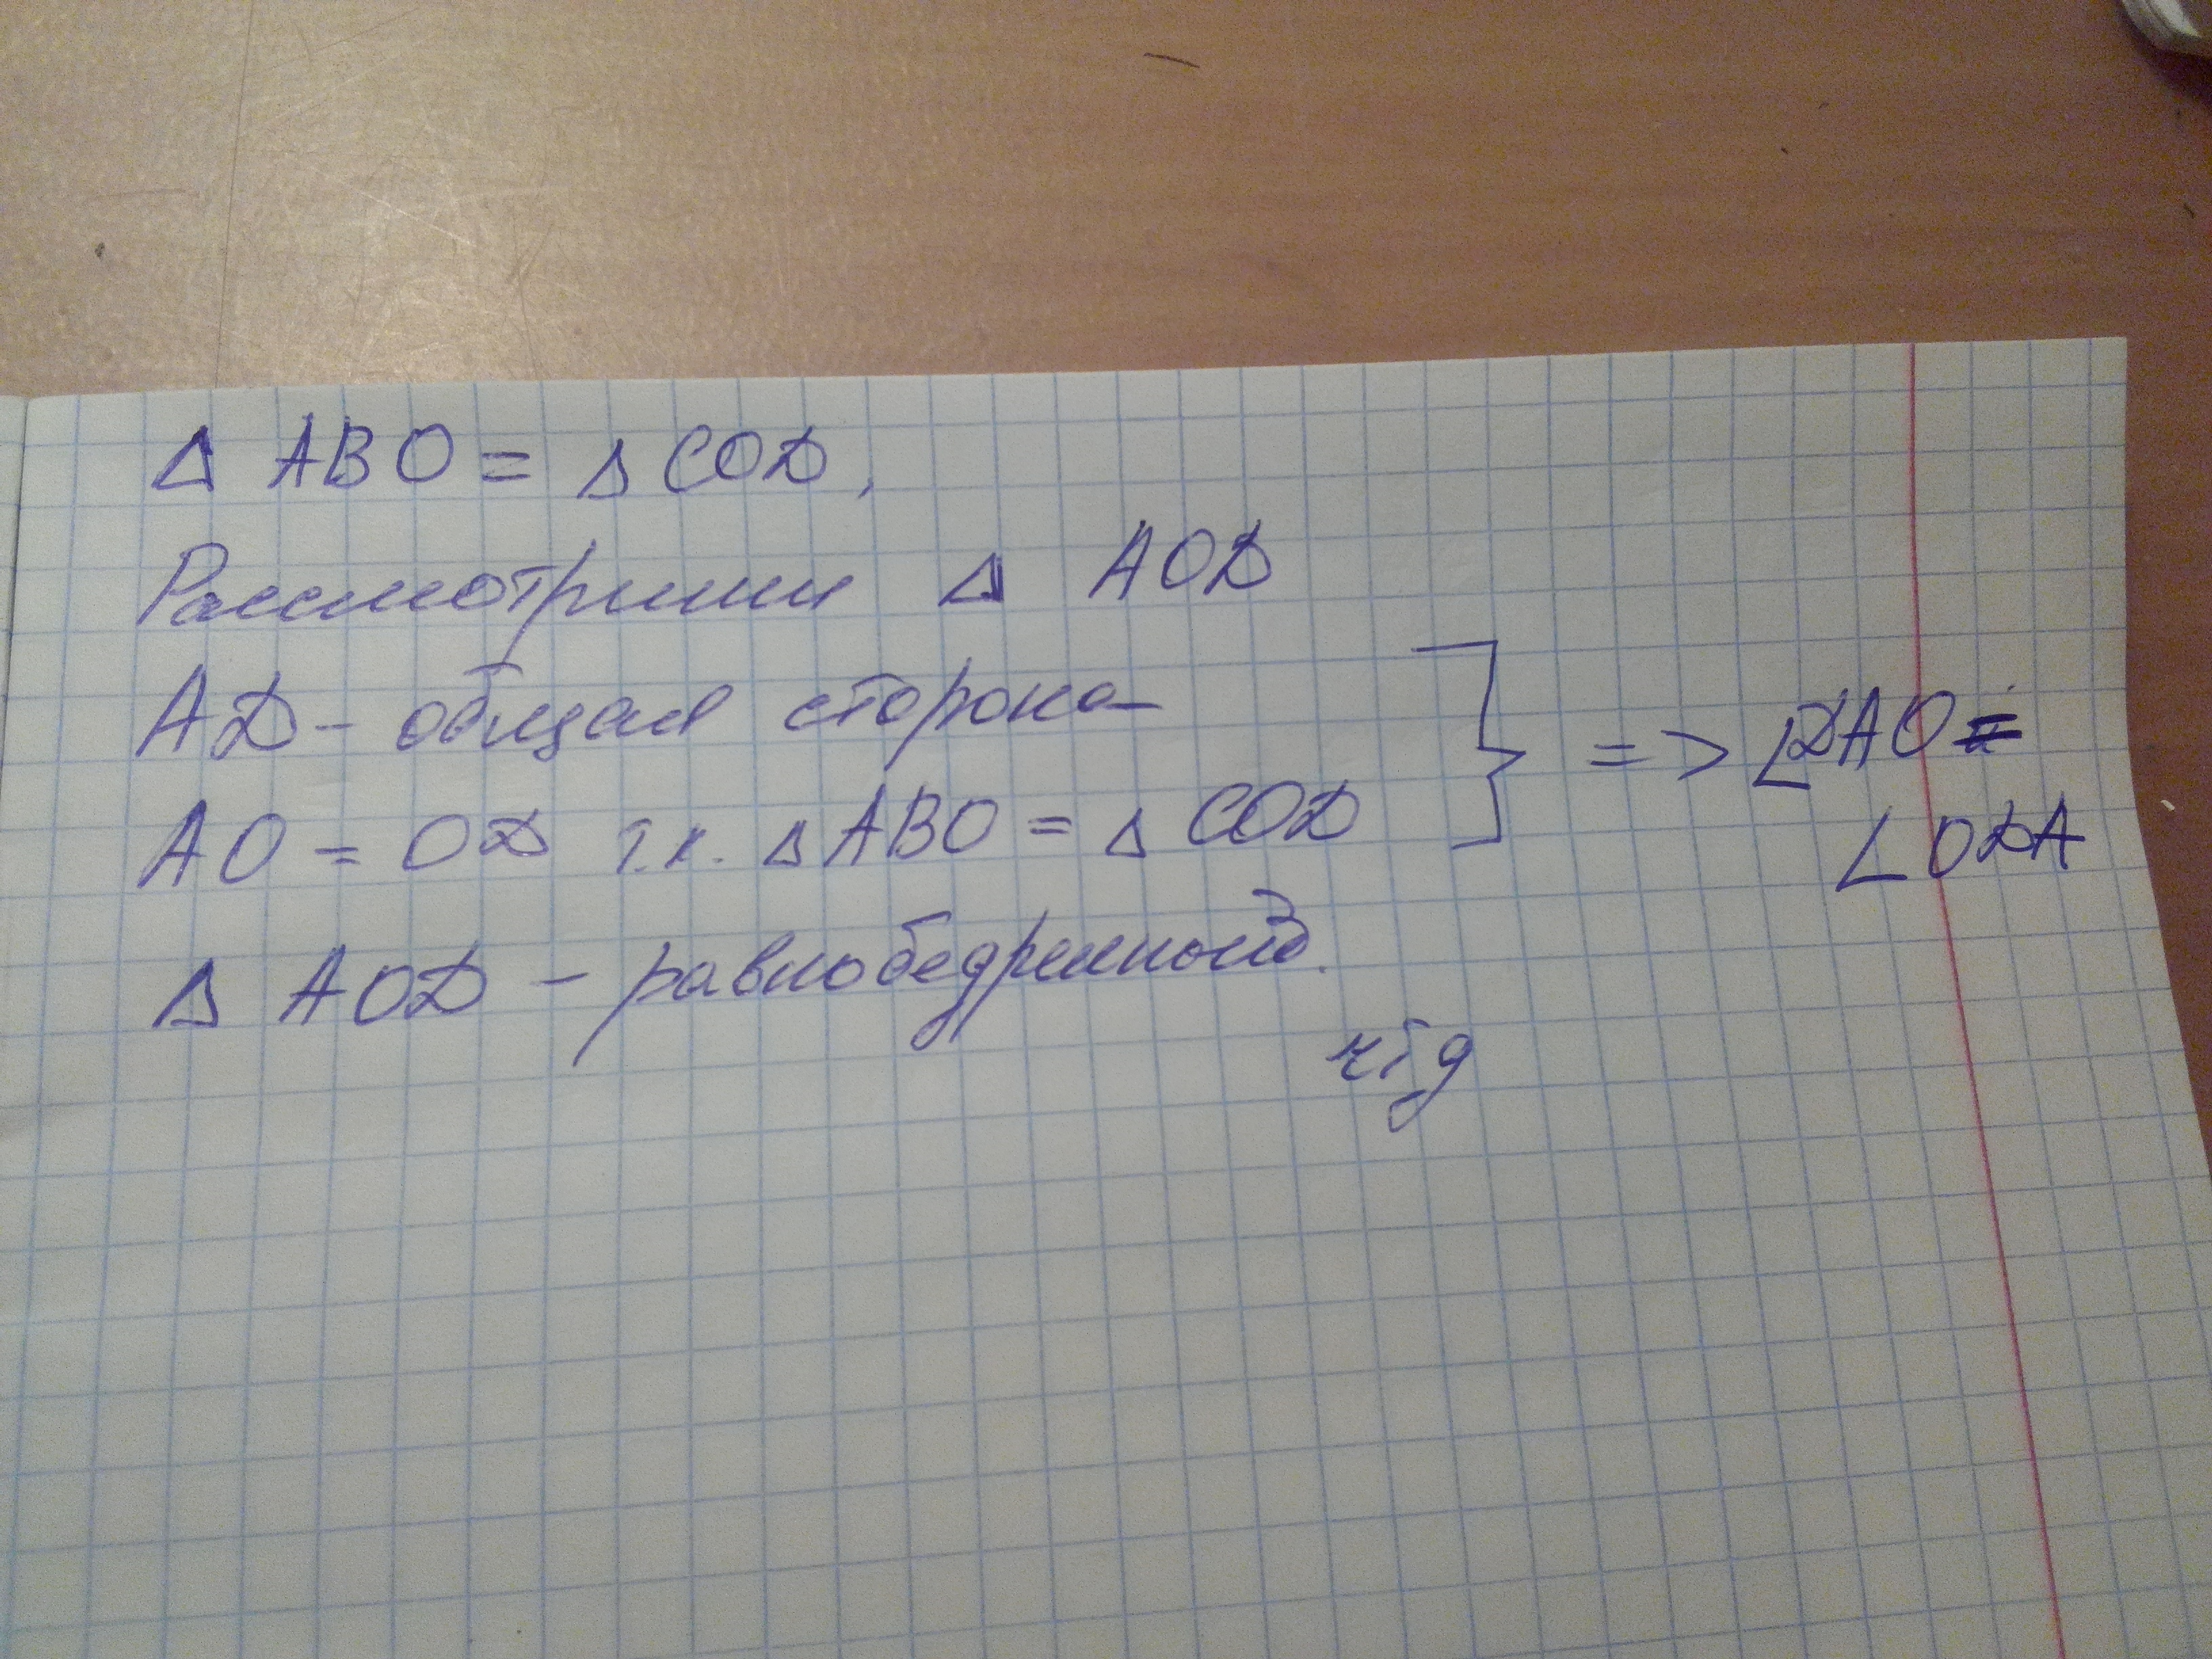 Δ ABO = Δ COD,
Рассмотрим Δ AOD
AD - общая сторона
AO = OD т.к. Δ ABO = Δ COD
} => ∠DAO =
∠ODA
Δ AOD - равнобедренный.
чтд